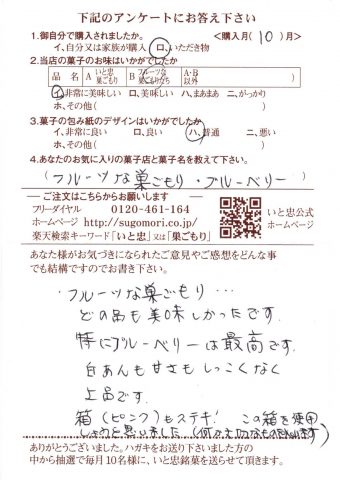 下記のアンケートにお答え下さい
1.御自分で購入されましたか。 <購入月( 10 )月>
イ、自分又は家族が購入 ロ、いただき物
2.当店の菓子のお味はいかがでしたか
品 名 A いと忠 巣ごもり B フルーツな 巣ごもりなら A・B 以外
イ、非常に美味しい ロ、美味しい ハ、まあまあ ニ、がっかり
ホ、その他(
3.菓子の包み紙のデザインはいかがでしたか
イ、非常に良い ロ、良い ハ、普通 ニ、悪い
ホ、その他(
4.あなたのお気に入りの菓子店と菓子名を教えて下さい。
(フルーツな巣ごもり・ブルーベリー)
ご注文はこちらからお願いします
フリーダイヤル 0120-461-164
ホームページ http://sugomori.co.jp/
楽天検索キーワード「いと忠」又は「巣ごもり」
いと忠公式
ホームページ
あなた様がお気づきになられたご意見やご感想をどんな事
でも結構ですのでお書き下さい。
・フルーツな巣ごもり…
どの品も美味しかったです。
特にブルーベリーは最高です。
白あんも甘さもしつこくなく
上品です。
箱(ピンク)もステキ! この箱を使用
しようと思いました(何か大切なもの
ありがとうございました。ハガキをお送り下さいました方の
中から抽選で毎月10名様に、いと忠銘菓を送らせて頂きます。